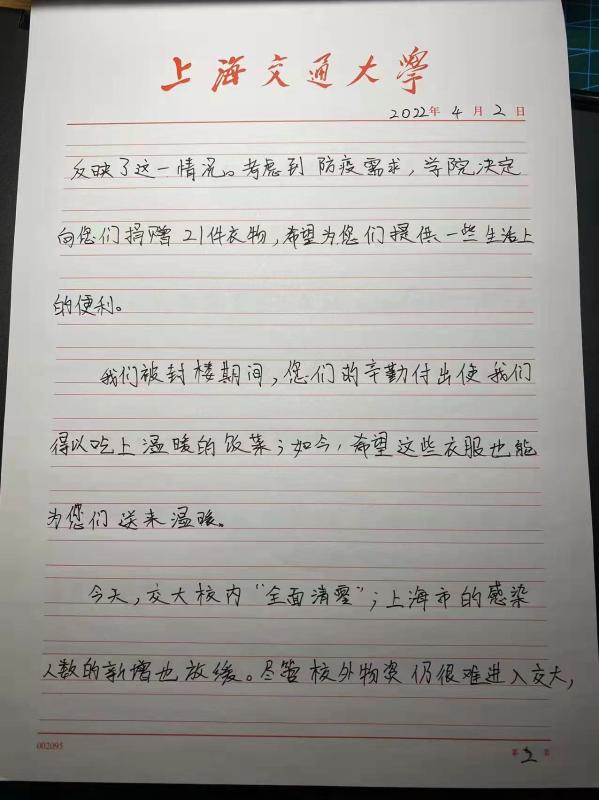 上海交通大学
2022年 4月 2日
反映了这一情况。考虑到防疫需求，学院决定
向您们捐赠21件衣物，希望为您们提供一些生活上
的便利。
我们被封楼期间，您们的辛勤付出使我们
得以吃上温暖的饭菜；如今，希望这些衣服也能
为您们送来温暖。
今天，交大校内“全面清零”；上海市的感染
人数的新增也放缓。尽管校外物资仍很难进入交大，
002095
第2页